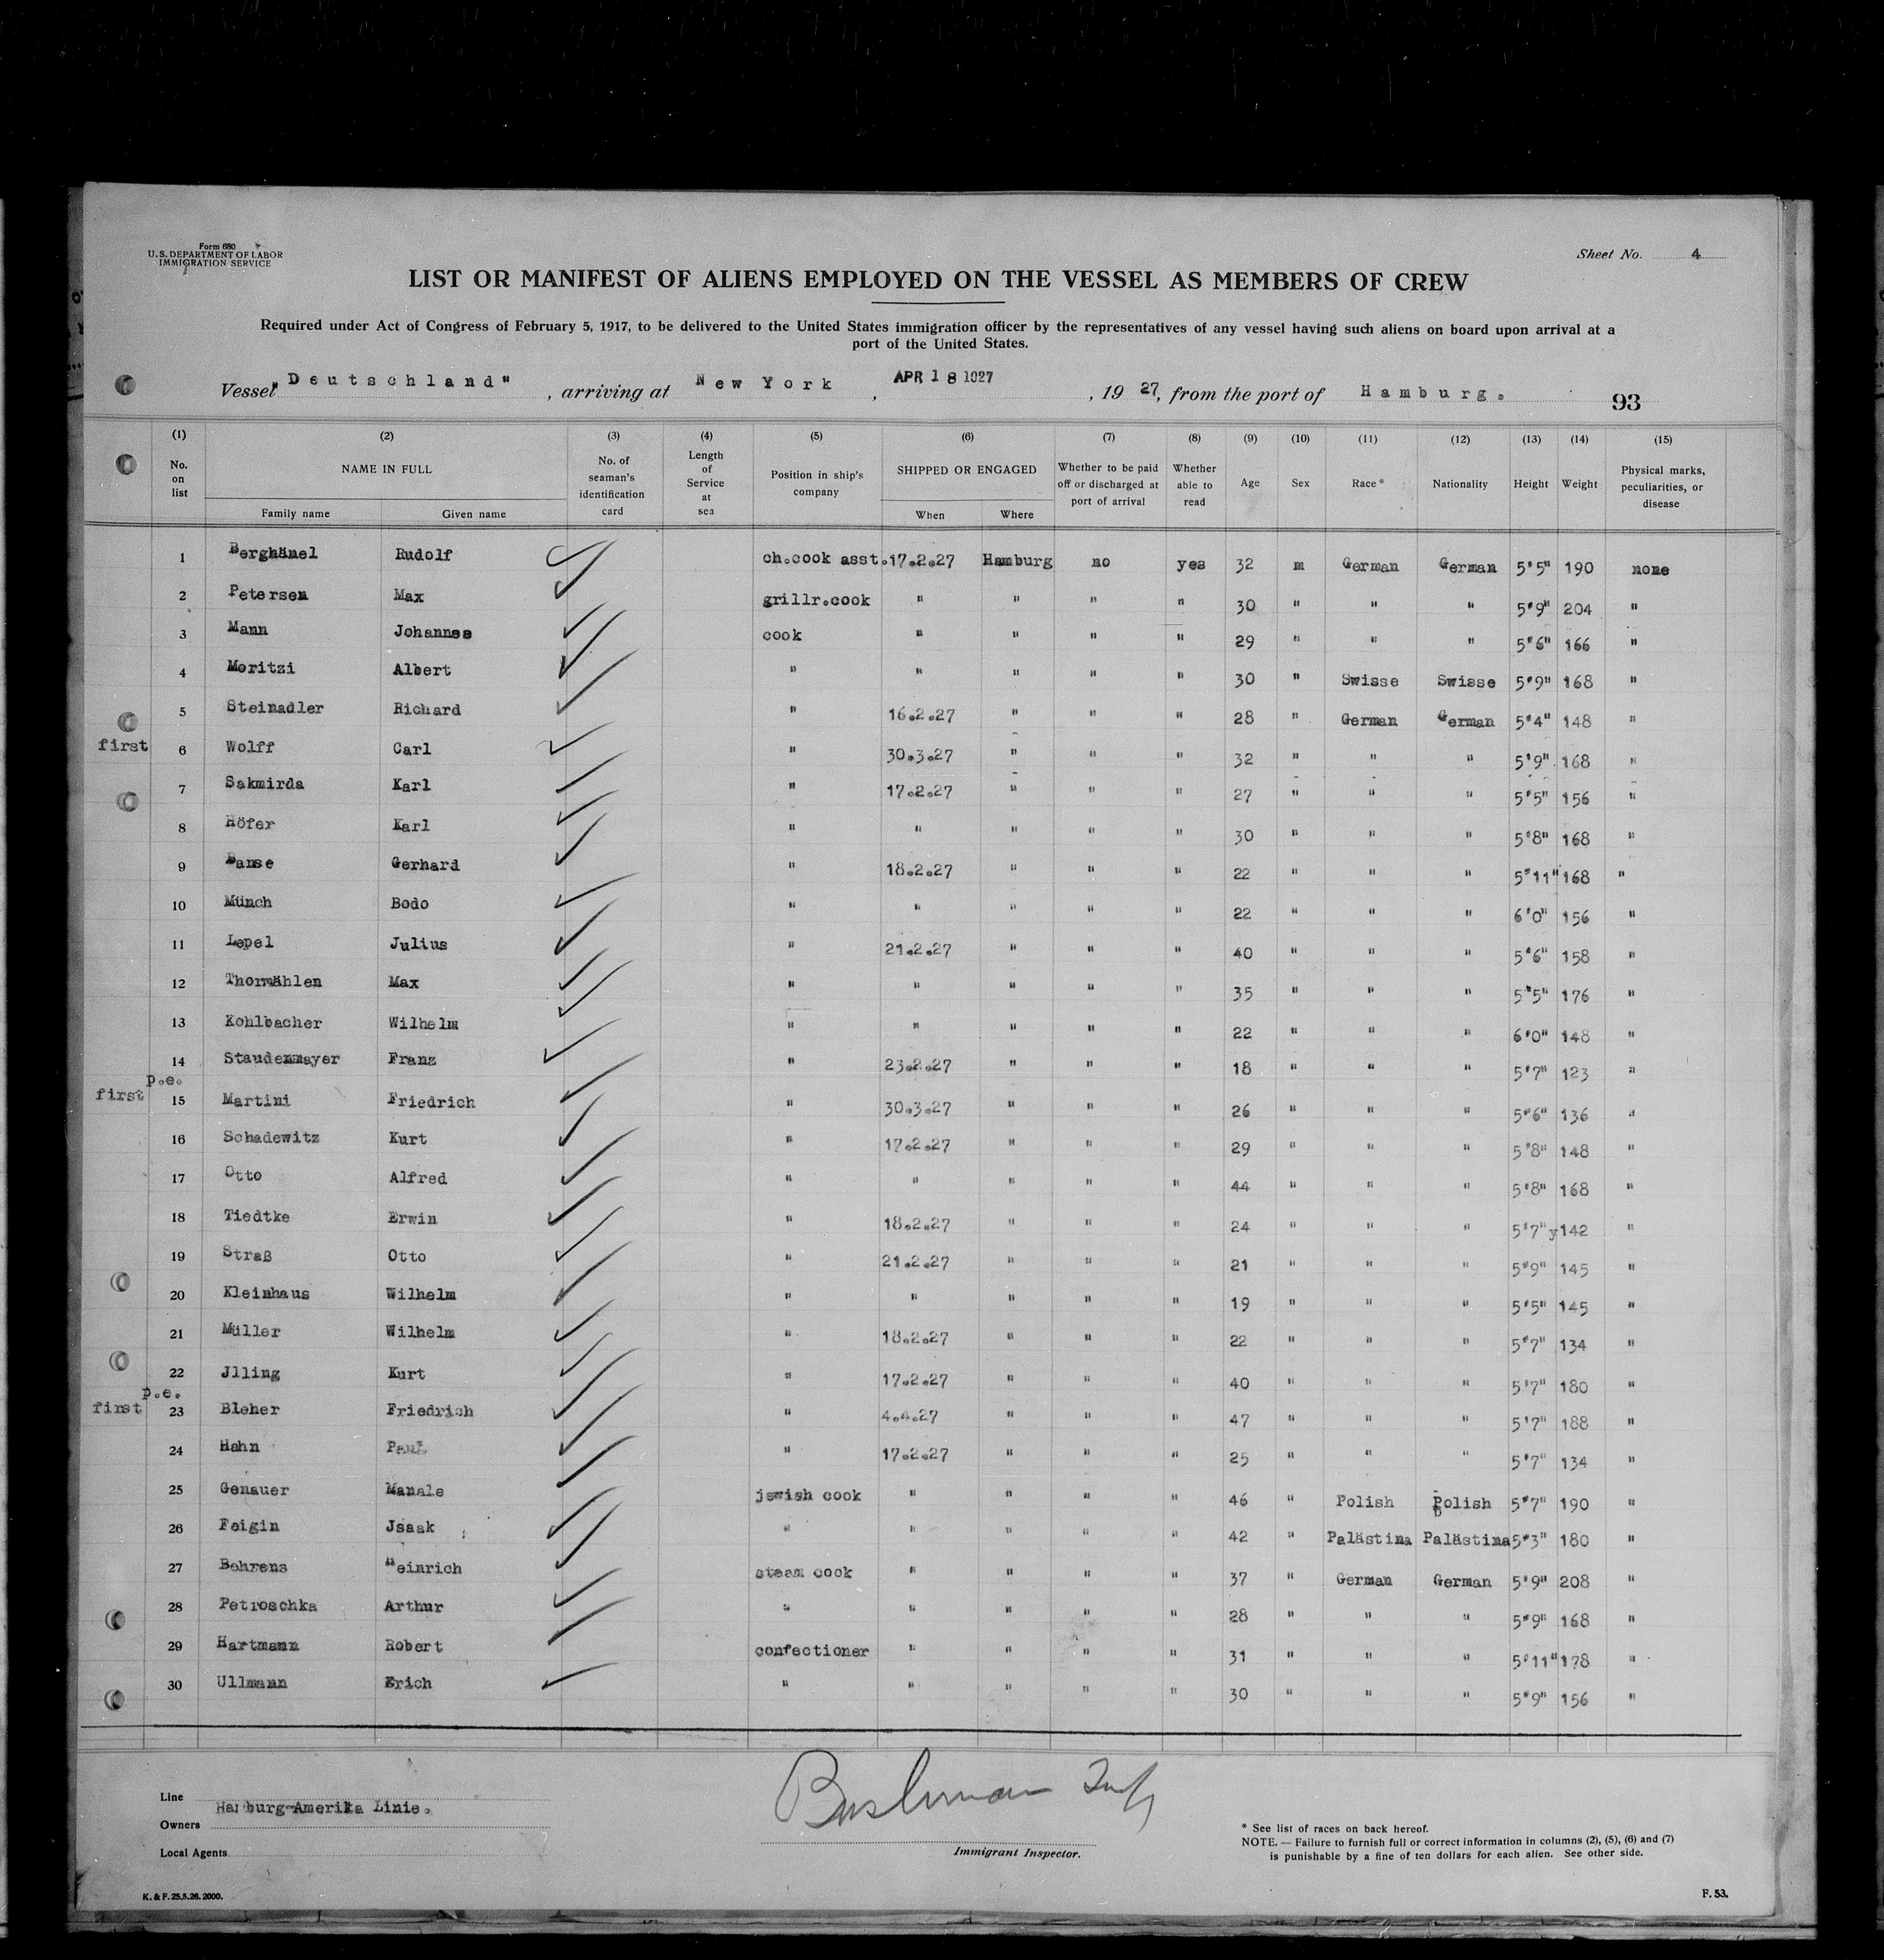 Form 680
U. S. DEPARTMENT OF LABOR
IMMIGRATION SERVICE
Sheet No. 4
LIST OR MANIFEST OF ALIENS EMPLOYED ON THE VESSEL AS MEMBERS OF CREW
Required under Act of Congress of February 5, 1917, to be delivered to the United States immigration officer by the representatives of any vessel having such aliens on board upon arrival at a
port of the United States.
Vessel "Deutschland", arriving at New York, APR 18 1927, 1927, from the port of Hamburg. 93
(1) (2) (3) (4) (5) (6) (7) (8) (9) (10) (11) (12) (13) (14) (15)
No. on list NAME IN FULL Family name Given name No. of seaman's identification card Length of Service at sea Position in ship's company SHIPPED OR ENGAGED When Where Whether to be paid off or discharged at port of arrival Whether able to read Age Sex Race* Nationality Height Weight Physical marks, peculiarities, or disease
1 Berghänel Rudolf ch.cook asst. 17.2.27 Hamburg no yes 32 m German German 5'5" 190 none
2 Petersen Max grillr.cook " " " " 30 " " " 5'9" 204 "
3 Mann Johannes cook " " " " 29 " " " 5'6" 166 "
4 Moritzi Albert " " " " " 30 " Swisse Swisse 5'9" 168 "
5 Steinadler Richard " 16.2.27 " " " 28 " German German 5'4" 148 "
first 6 Wolff Carl " 30.3.27 " " " 32 " " " 5'9" 168 "
7 Sakmirda Karl " 17.2.27 " " " 27 " " " 5'5" 156 "
8 Höfer Karl " " " " " 30 " " " 5'8" 168 "
9 Banse Gerhard " 18.2.27 " " " 22 " " " 5'11" 168 "
10 Münch Bodo " " " " " 22 " " " 6'0" 156 "
11 Lepel Julius " 21.2.27 " " " 40 " " " 5'6" 158 "
12 Thormählen Max " " " " " 35 " " " 5'5" 176 "
13 Kohlbacher Wilhelm " " " " " 22 " " " 6'0" 148 "
14 Staudenmayer Franz " 23.2.27 " " " 18 " " " 5'7" 123 "
p.e.
first 15 Martini Friedrich " 30.3.27 " " " 26 " " " 5'6" 136 "
16 Schadewitz Kurt " 17.2.27 " " " 29 " " " 5'8" 148 "
17 Otto Alfred " " " " " 44 " " " 5'8" 168 "
18 Tiedtke Erwin " 18.2.27 " " " 24 " " " 5'7" y142 "
19 Straß Otto " 21.2.27 " " " 21 " " " 5'9" 145 "
20 Kleinhaus Wilhelm " " " " " 19 " " " 5'5" 145 "
21 Müller Wilhelm " 18.2.27 " " " 22 " " " 5'7" 134 "
22 Jlling Kurt " 17.2.27 " " " 40 " " " 5'7" 180 "
p.e.
first 23 Bleher Friedrich " 4.4.27 " " " 47 " " " 5'7" 188 "
24 Hahn Paul " 17.2.27 " " " 25 " " " 5'7" 134 "
25 Genauer Manale jewish cook " " " " 46 " Polish Polish 5'7" 190 "
26 Feigin Jsaak " " " " " 42 " Palästina Palästina 5'3" 180 "
27 Behrens Heinrich steam cook " " " " 37 " German German 5'9" 208 "
28 Petroschka Arthur " " " " " 28 " " " 5'9" 168 "
29 Hartmann Robert confectioner " " " " 31 " " " 5'11" 178 "
30 Ullmann Erich " " " " " 30 " " " 5'9" 156 "
Line
Hamburg-Amerika Linie.
Owners
Local Agents
Immigrant Inspector.
* See list of races on back hereof.
NOTE. — Failure to furnish full or correct information in columns (2), (5), (6) and (7)
is punishable by a fine of ten dollars for each alien. See other side.
K. & F. 25.5.26. 2000.
F. 53.